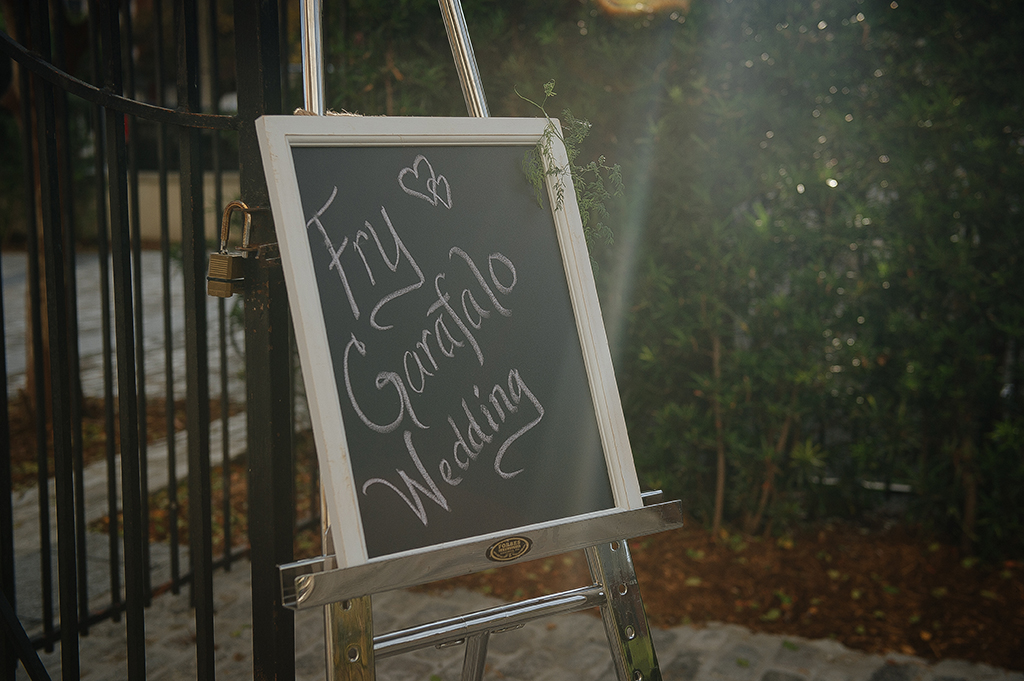 Fry
Garafalo
Wedding